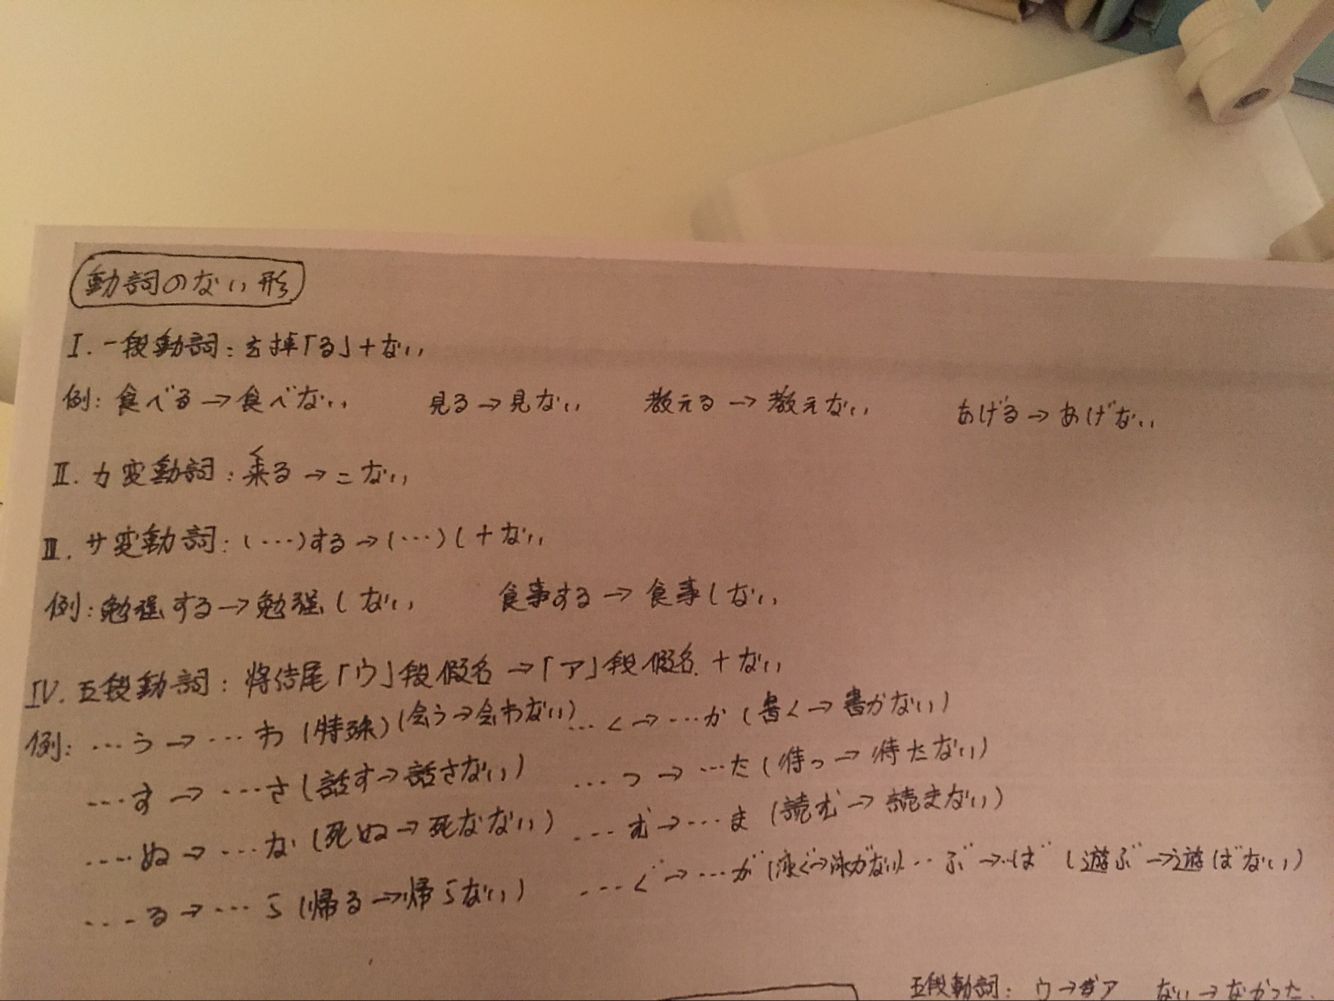 動詞のない形
I. 一段動詞：去掉「る」+ない
例：食べる→食べない 見る→見ない 教える→教えない あげる→あげない
II. カ変動詞：来る→こない
く
III. サ変動詞：(…)する→(…)し+ない
例：勉強する→勉強しない 食事する→食事しない
IV. 五段動詞：将结尾「ウ」段假名→「ア」段假名+ない
例：…う→…わ(特殊)(会う→会わない) …く→…か(書く→書かない)
…す→…さ(話す→話さない) …つ→…た(待つ→待たない)
…ぬ→…な(死ぬ→死なない) …む→…ま(読む→読まない)
…る→…ら(帰る→帰らない) …ぐ→…が(泳ぐ→泳がない)…ぶ→…ば(遊ぶ→遊ばない)
五段動詞：ウ→ア ない→なかった